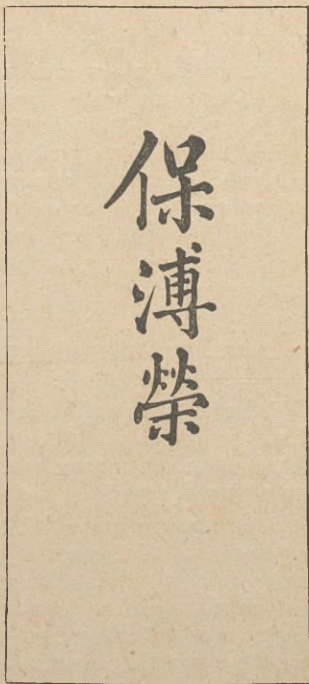 保溥榮